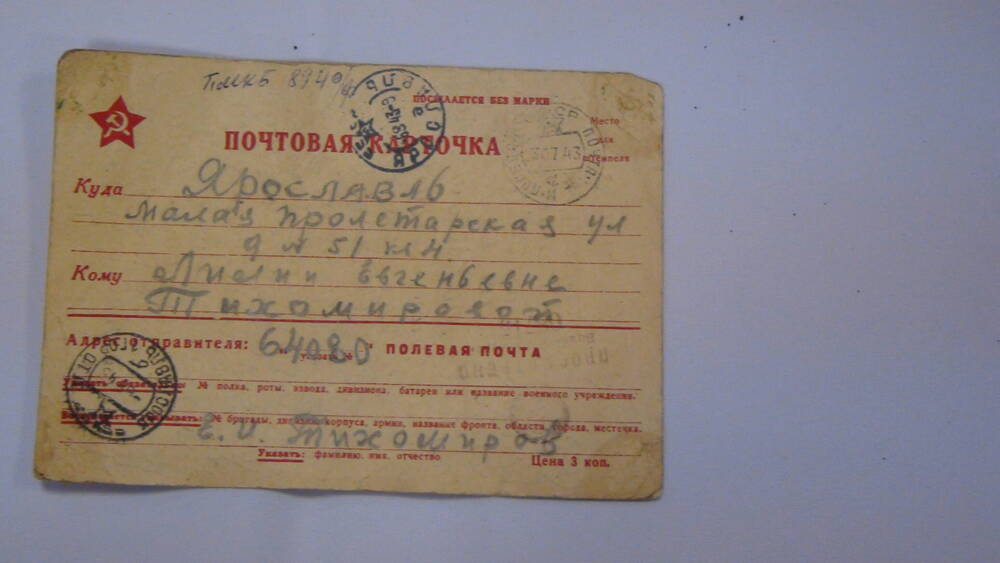 ПМКБ 8940
ПОСЫЛАЕТСЯ БЕЗ МАРКИ
Место для штемпеля
ПОЧТОВАЯ КАРТОЧКА
Куда Ярославль
Малая Пролетарская ул
д № 51 кв 4
Кому Лилии Евгеньевне
Тихомировой
Адрес отправителя: 64080 ПОЛЕВАЯ ПОЧТА
указать №
Указать обязательно: № полка, роты, взвода, дивизиона, батареи или название военного учреждения.
Воспрещается указывать: № бригады, дивизии, корпуса, армии, название фронта, области, города, местечка.
Е. И. Тихомиров
Указать: фамилию, имя, отчество
Цена 3 коп.